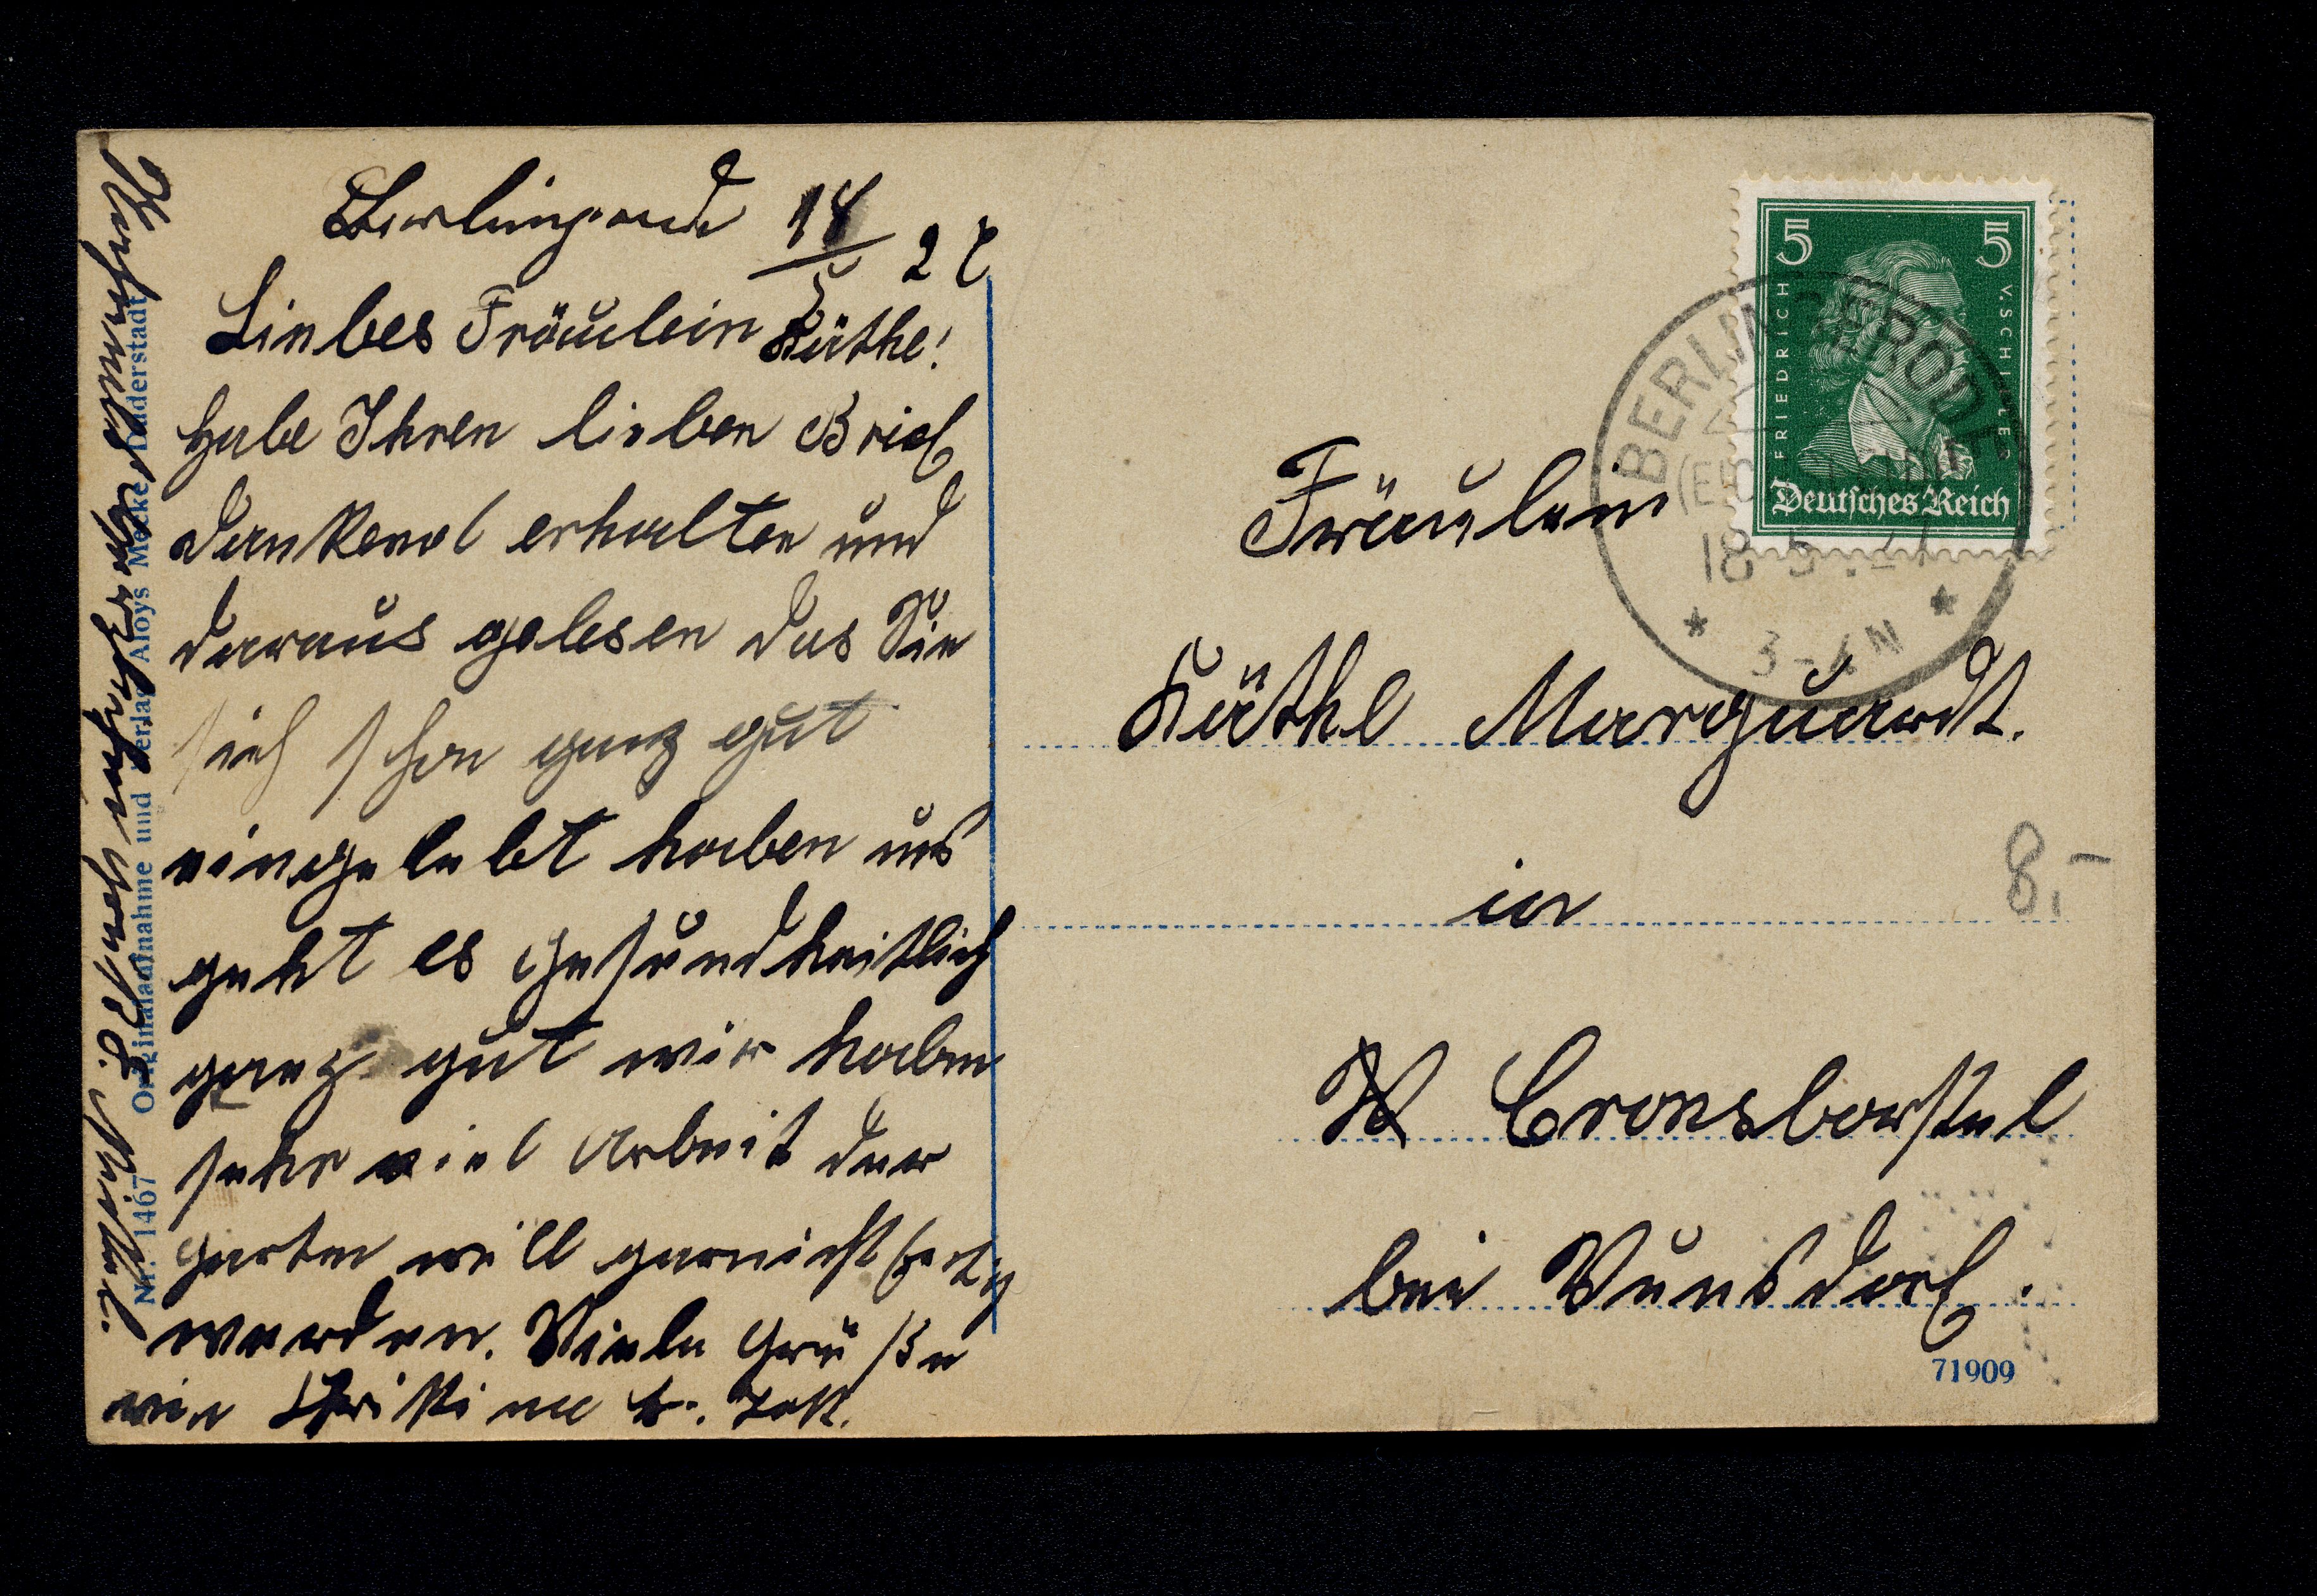 Berlingerode 18/5 27
Liebes Fräulein Käthe!
Habe Ihren lieben Brief
dankend erhalten und
daraus gelesen das Sie
sich schon ganz gut
eingelebt haben uns
geht es gesundheitlich
ganz gut wir haben
sehr viel Arbeit der
garten will garnicht fertig
werden. Viele Grüße
wie Christine
Nr. 1467 Originalaufnahme und Verlag Aloys Mecke, Duderstadt
5 5
FRIEDRICH V. SCHILLER
Deutsches Reich
BERLINGERODE
18.5.27
3-4N
Fräulein
Käthe Marquardt.
in
8.-
Cronsborstel
bei Wunsdorf.
71909